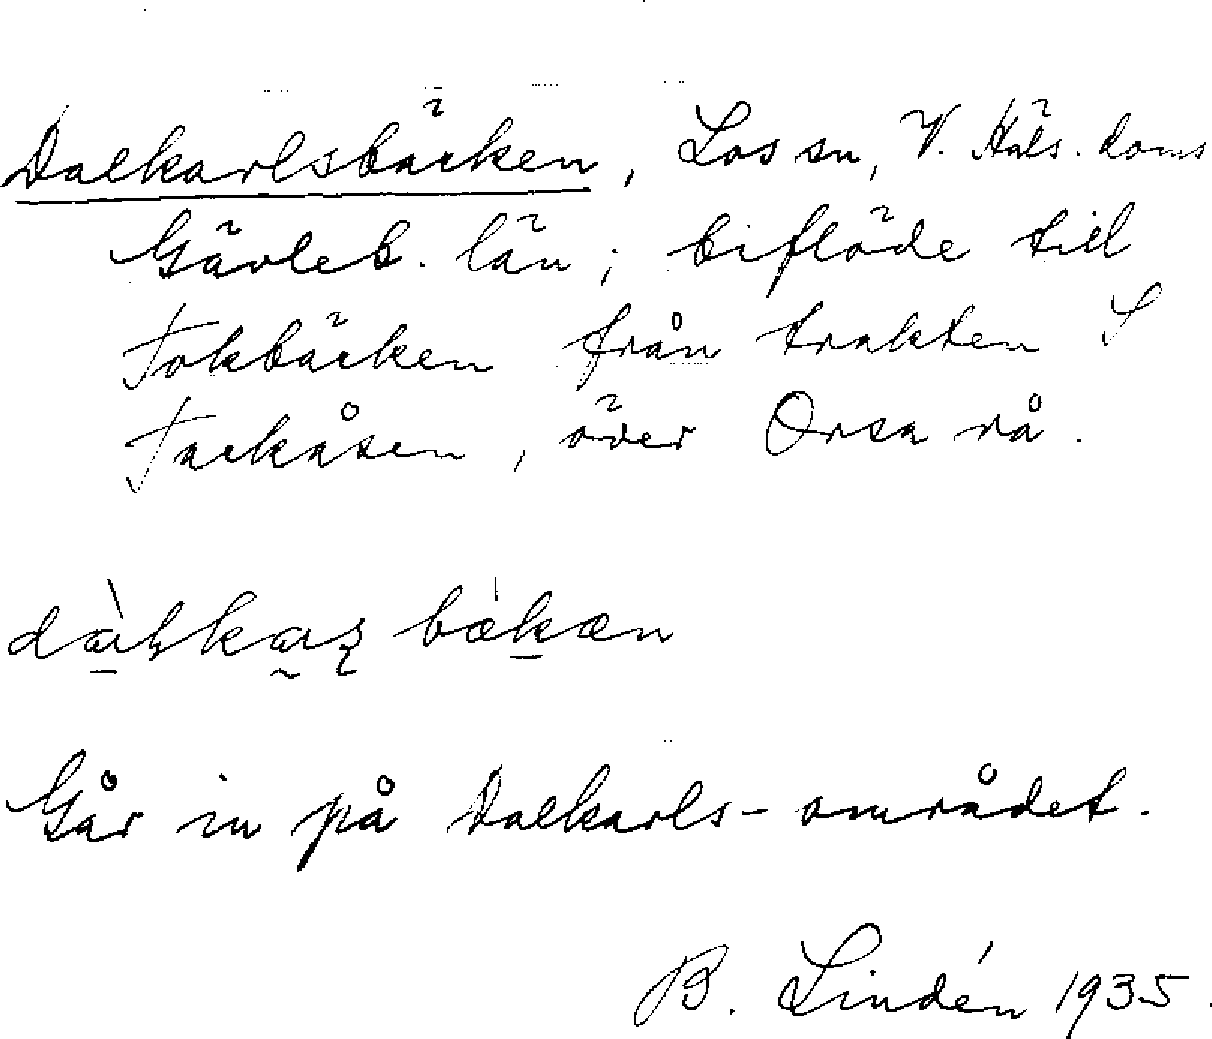 Dalkarlsbäcken, Los sn, V. Häls. doms
Gävleb. län; biflöde till
Tokbäcken från trakten S
Tackåsen, över Orsa rå.
dàlskaṣ bækæn
Går in på Dalkarls-området.
B. Lindén 1935.